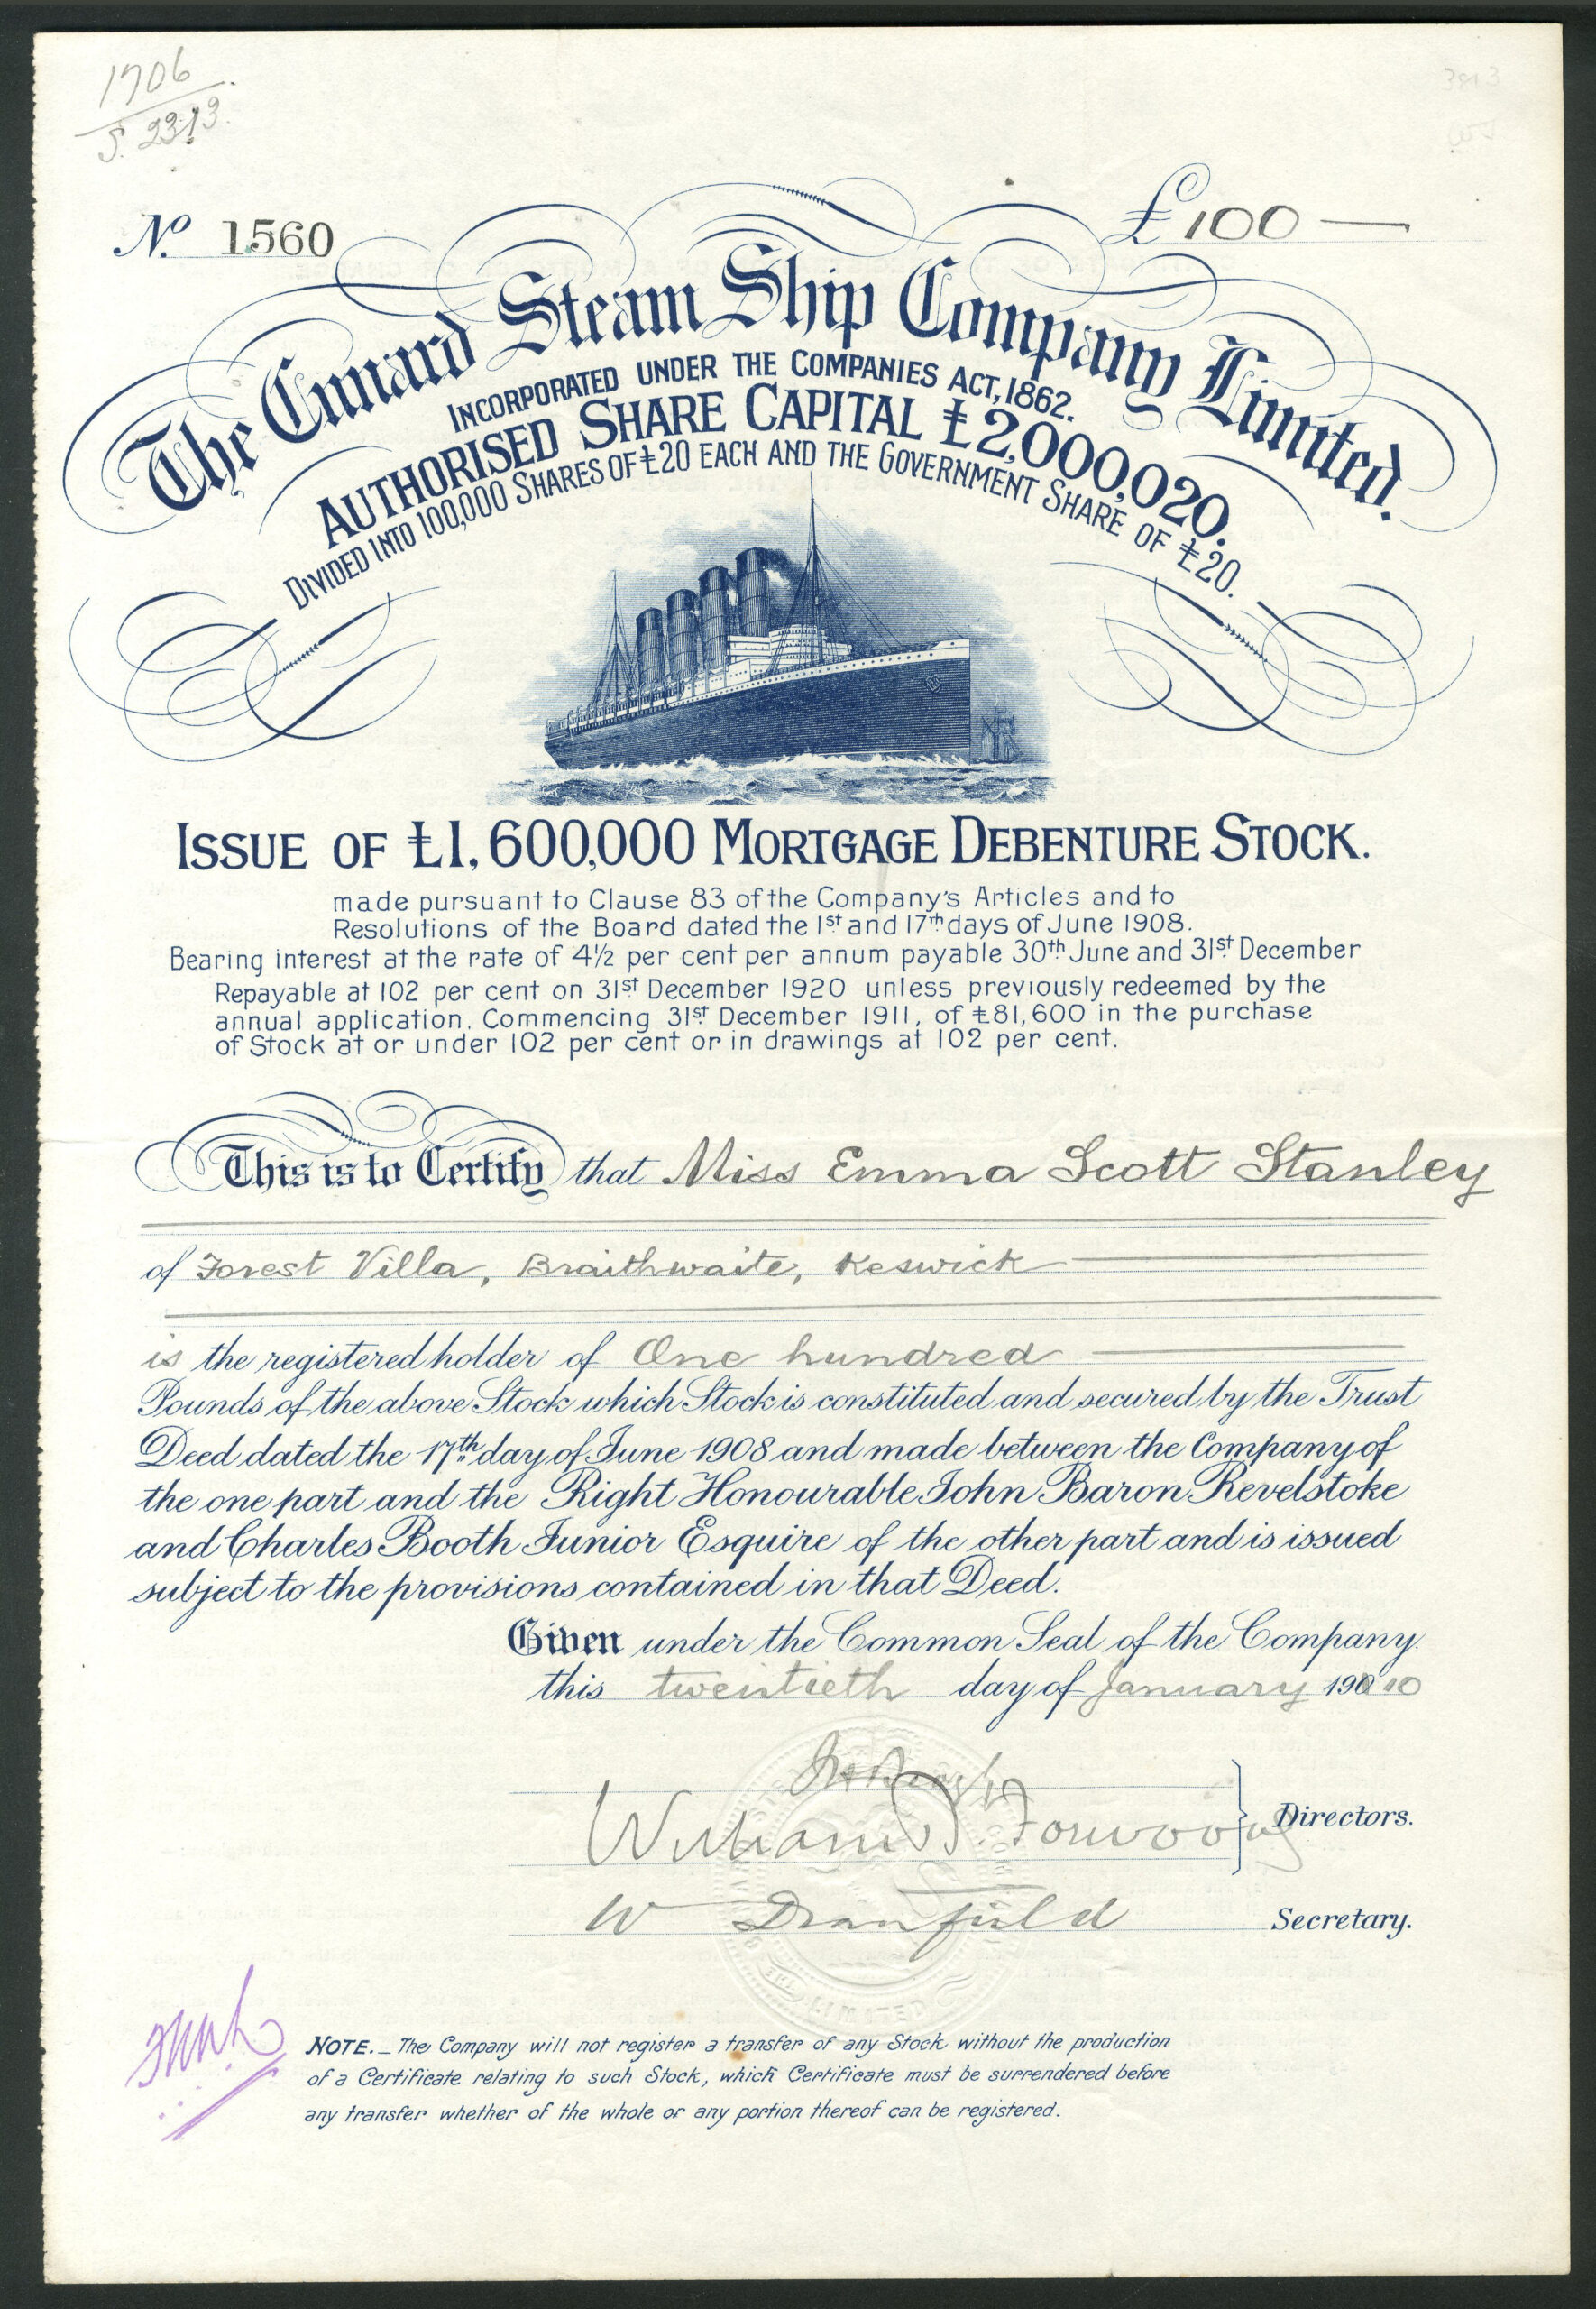 1706
S. 2313.
No. 1560
£100 —
The Cunard Steam Ship Company Limited.
INCORPORATED UNDER THE COMPANIES ACT, 1862.
AUTHORISED SHARE CAPITAL £2,000,020.
DIVIDED INTO 100,000 SHARES OF £20 EACH AND THE GOVERNMENT SHARE OF £20.
ISSUE OF £1,600,000 MORTGAGE DEBENTURE STOCK.
made pursuant to Clause 83 of the Company's Articles and to
Resolutions of the Board dated the 1st and 17th days of June 1908.
Bearing interest at the rate of 4½ per cent per annum payable 30th June and 31st December
Repayable at 102 per cent on 31st December 1920 unless previously redeemed by the
annual application, Commencing 31st December 1911, of £81,600 in the purchase
of Stock at or under 102 per cent or in drawings at 102 per cent.
This is to Certify that Miss Emma Scott Stanley
of Forest Villa, Braithwaite, Keswick
is the registered holder of One hundred
Pounds of the above Stock which Stock is constituted and secured by the Trust
Deed dated the 17th day of June 1908 and made between the Company of
the one part and the Right Honourable John Baron Revelstoke
and Charles Booth Junior Esquire of the other part and is issued
subject to the provisions contained in that Deed.
Given under the Common Seal of the Company.
this twentieth day of January 1910
William B. Forwood
Directors.
W Dranfield
Secretary.
LIMITED
NOTE. _ The Company will not register a transfer of any Stock without the production
of a Certificate relating to such Stock, which Certificate must be surrendered before
any transfer whether of the whole or any portion thereof can be registered.